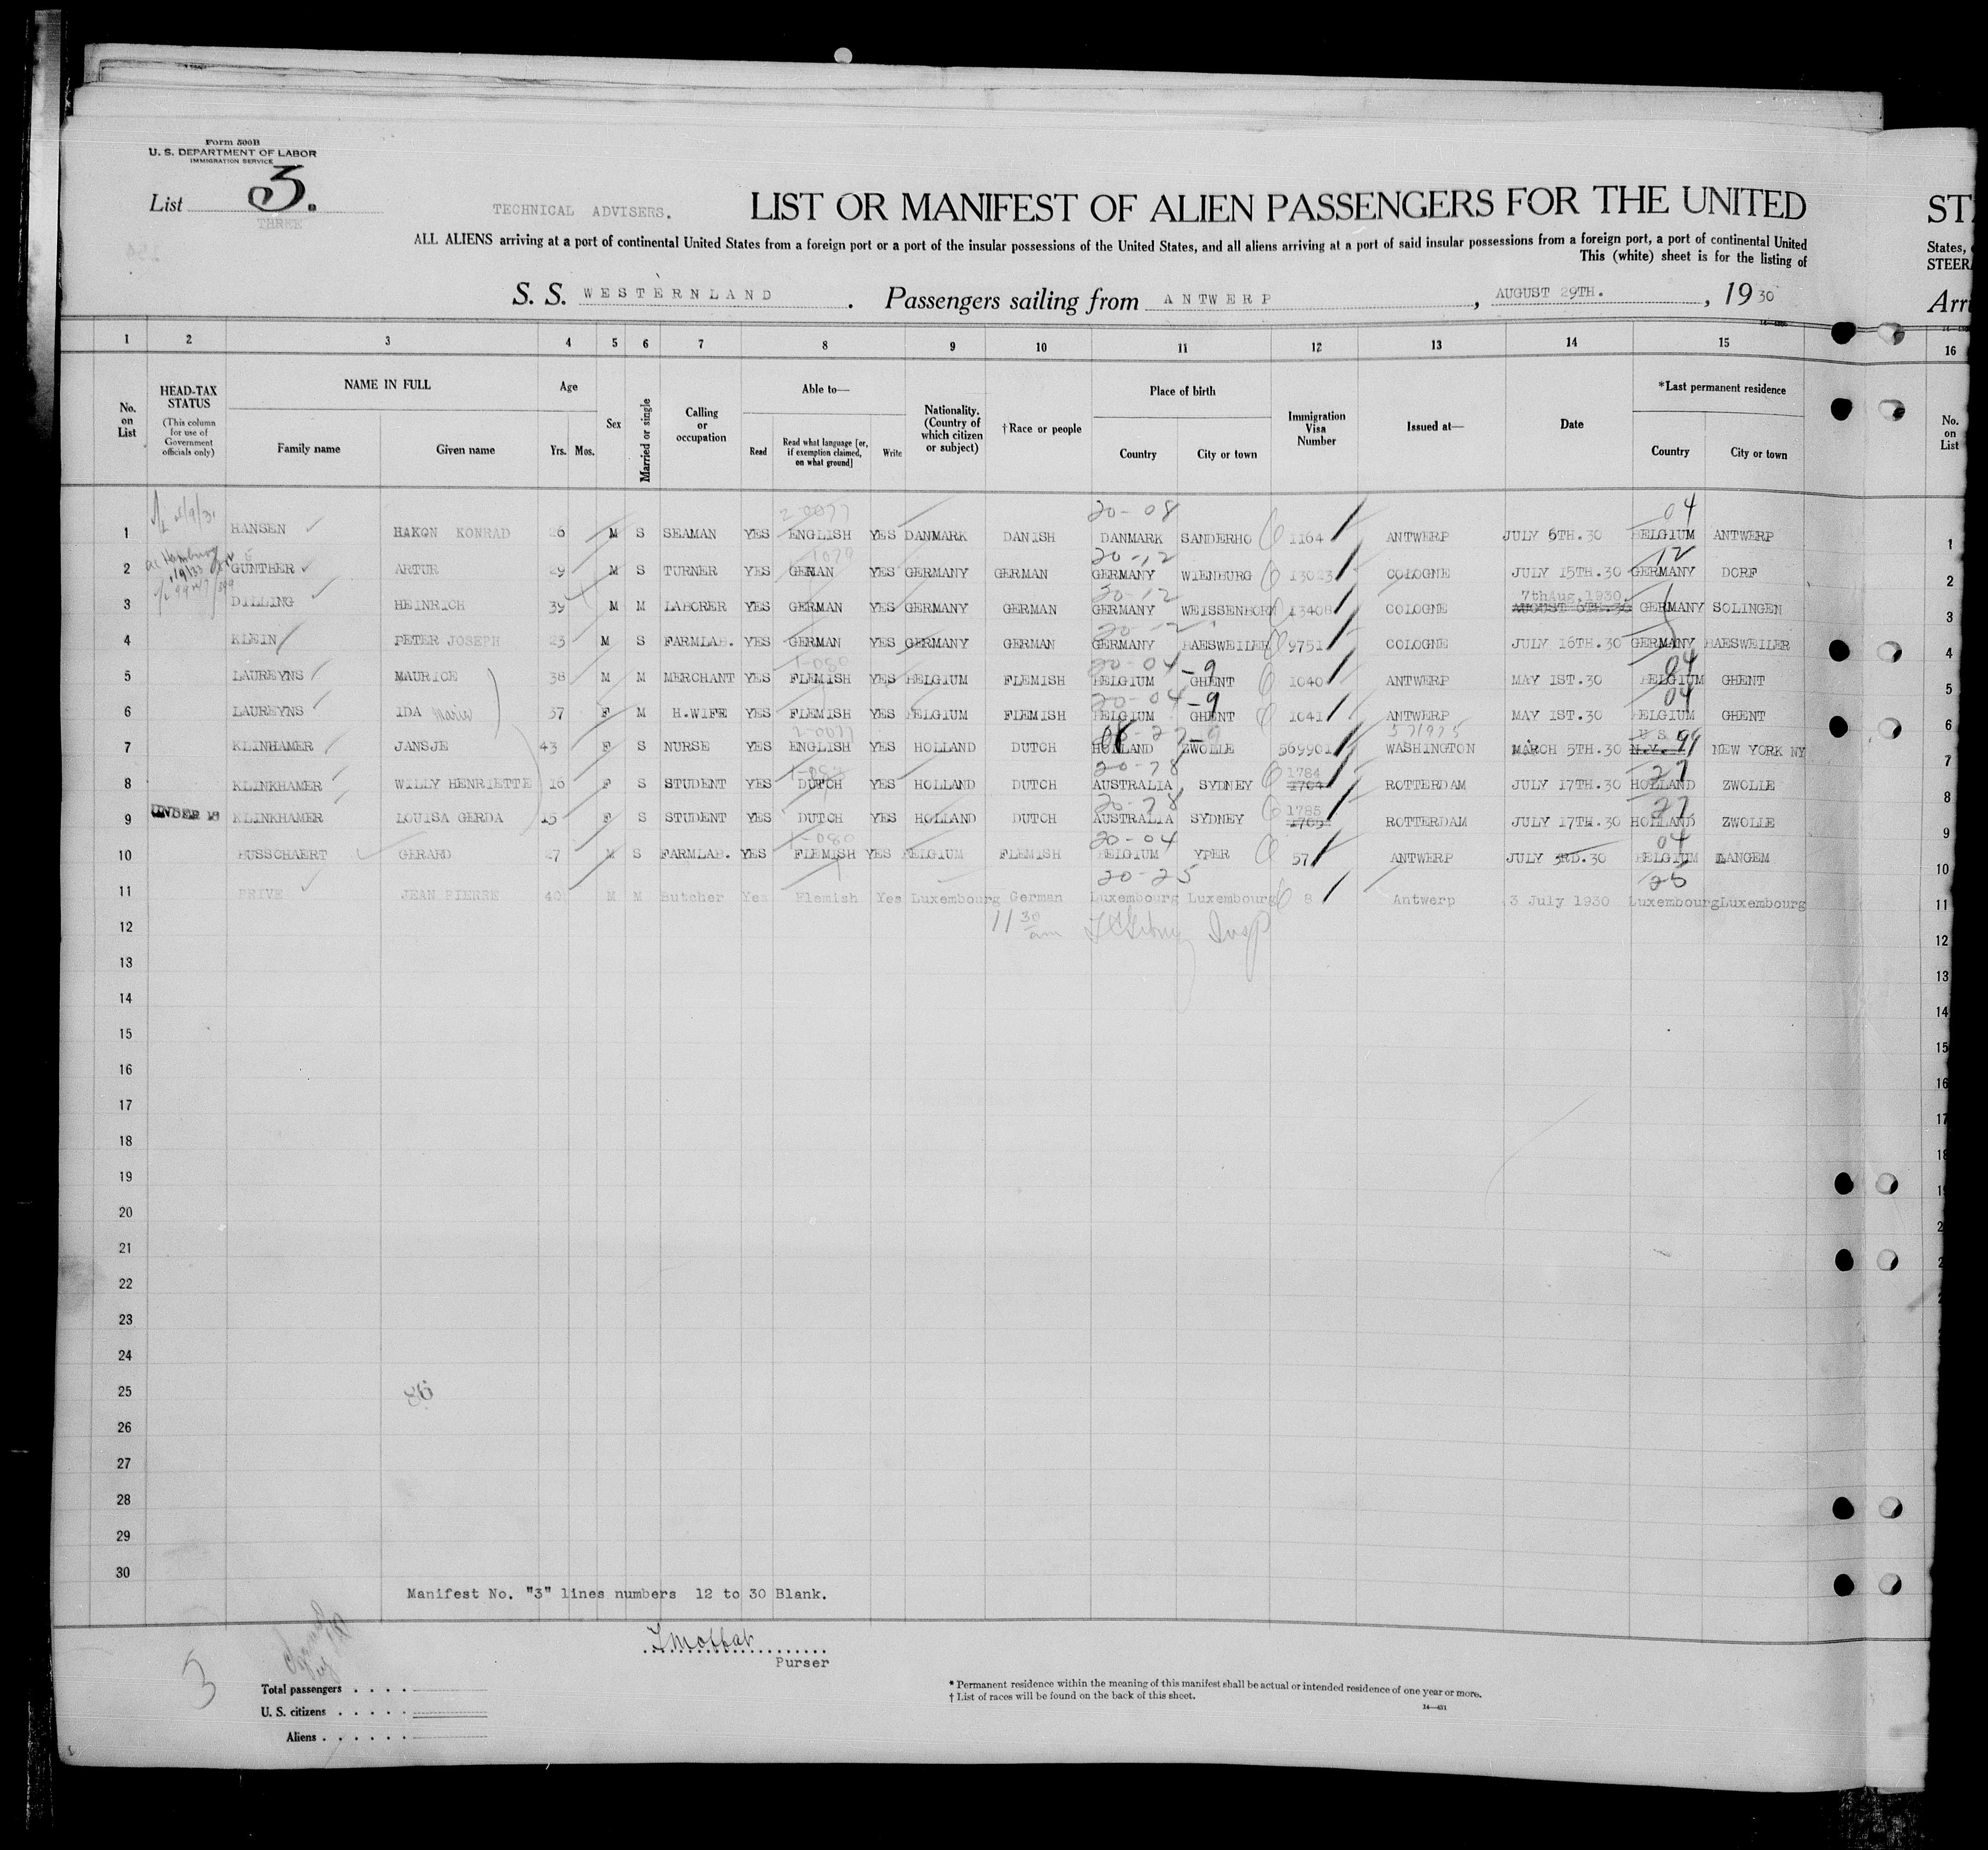 Form 500B
U. S. DEPARTMENT OF LABOR
IMMIGRATION SERVICE
List 3.
THREE
TECHNICAL ADVISERS.
LIST OR MANIFEST OF ALIEN PASSENGERS FOR THE UNITED
ALL ALIENS arriving at a port of continental United States from a foreign port or a port of the insular possessions of the United States, and all aliens arriving at a port of said insular possessions from a foreign port, a port of continental United
This (white) sheet is for the listing of
S. S. WESTERNLAND. Passengers sailing from ANTWERP, AUGUST 29TH., 1930
ST
States,
STEER
Arri
1 2 3 4 5 6 7 8 9 10 11 12 13 14 15 16
No. on List
HEAD-TAX STATUS (This column for use of Government officials only)
NAME IN FULL
Family name Given name
Age
Yrs. Mos.
Sex
Married or single
Calling or occupation
Able to—
Read Read what language [or, if exemption claimed, on what ground] Write
Nationality. (Country of which citizen or subject)
†Race or people
Place of birth
Country City or town
Immigration Visa Number
Issued at—
Date
*Last permanent residence
Country City or town
No. on List
2-0077 20-08 04
1 HANSEN HAKON KONRAD 26 M S SEAMAN YES ENGLISH YES DANMARK DANISH DANMARK SANDERHO 1164 ANTWERP JULY 6TH.30 BELGIUM ANTWERP 1
20-12 12
2 GUNTHER ARTUR 29 M S TURNER YES GERMAN YES GERMANY GERMAN GERMANY WIENBURG 13023 COLOGNE JULY 15TH.30 GERMANY DORF 2
20-12 7th Aug. 1930
3 DILLING HEINRICH 39 M M LABORER YES GERMAN YES GERMANY GERMAN GERMANY WEISSENHORN 13408 COLOGNE AUGUST 6TH.30 GERMANY SOLINGEN 3
20-12
4 KLEIN PETER JOSEPH 23 M S FARMLAB. YES GERMAN YES GERMANY GERMAN GERMANY BAESWEILER 9751 COLOGNE JULY 16TH.30 GERMANY BAESWEILER 4
1-080 20-04 -9 04
5 LAUREYNS MAURICE 38 M M MERCHANT YES FLEMISH YES BELGIUM FLEMISH BELGIUM GHENT 1040 ANTWERP MAY 1ST.30 BELGIUM GHENT 5
20-04 -9 04
6 LAUREYNS IDA Maria 37 F M H.WIFE YES FLEMISH YES BELGIUM FLEMISH BELGIUM GHENT 1041 ANTWERP MAY 1ST.30 BELGIUM GHENT 6
2-0077 571975 U S 99
7 KLINHAMER JANSJE 43 F S NURSE YES ENGLISH YES HOLLAND DUTCH HOLLAND ZWOLLE 569901 WASHINGTON MARCH 5TH.30 N.Y. NEW YORK NY 7
20-78 1784 27
8 KLINKHAMER WILLY HENRIETTE 16 F S STUDENT YES DUTCH YES HOLLAND DUTCH AUSTRALIA SYDNEY 1764 ROTTERDAM JULY 17TH.30 HOLLAND ZWOLLE 8
20-78 1785 27
9 UNDER 16 KLINKHAMER LOUISA GERDA 15 F S STUDENT YES DUTCH YES HOLLAND DUTCH AUSTRALIA SYDNEY 1765 ROTTERDAM JULY 17TH.30 HOLLAND ZWOLLE 9
1-080 20-04 04
10 BUSSCHAERT GERARD 27 M S FARMLAB. YES FLEMISH YES BELGIUM FLEMISH BELGIUM YPER 57 ANTWERP JULY 3RD.30 BELGIUM LANGEM 10
20-25 25
11 PRIVE JEAN PIERRE 40 M M Butcher Yes Flemish Yes Luxembourg German Luxembourg Luxembourg 8 Antwerp 3 July 1930 Luxembourg Luxembourg 11
11 30 am Insp
12 12
13 13
14 14
15 15
16 16
17 17
18 18
19
20
21
22
23
24
25 86
26
27
28
29
30
Manifest No. "3" lines numbers 12 to 30 Blank.
Purser
3
Total passengers
U. S. citizens
Aliens
* Permanent residence within the meaning of this manifest shall be actual or intended residence of one year or more.
† List of races will be found on the back of this sheet.